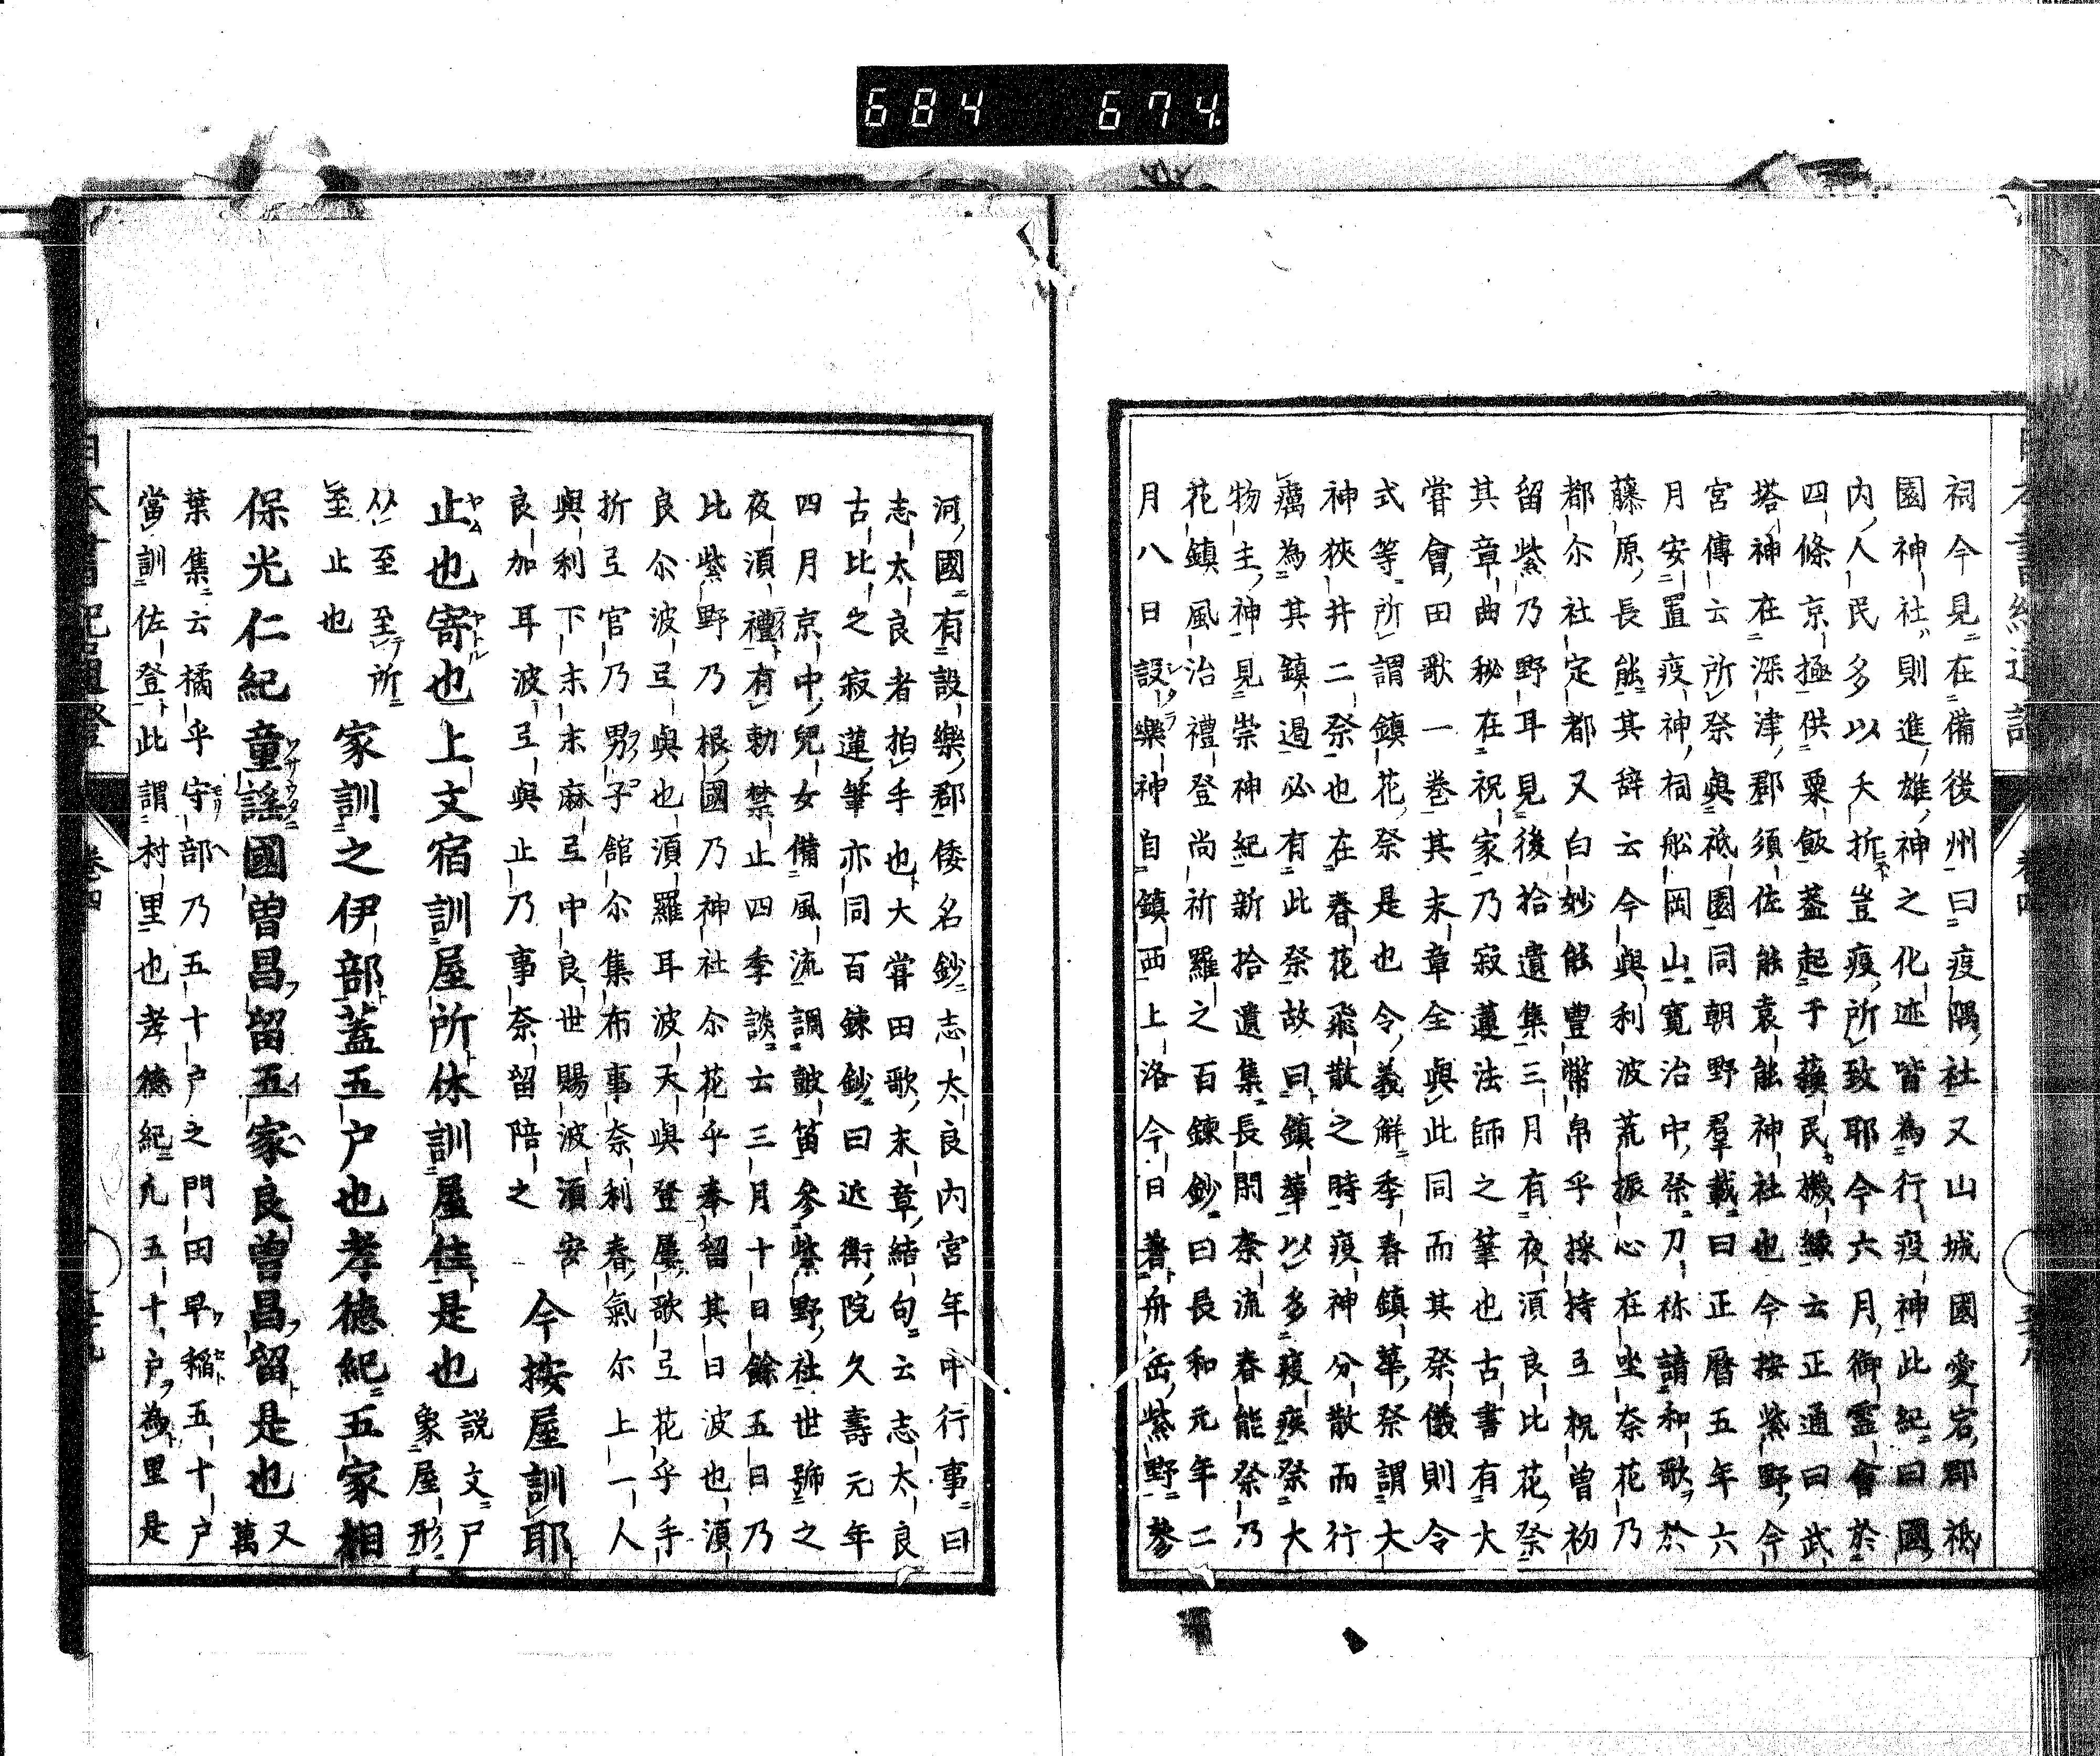 684 674
祠今見在備後州曰疫隅社又山城國愛宕郡祇
園神社則進雄神之化迹皆為行疫神此紀曰國
内人民多以夭折豈疫所致耶今六月御霊會於
四條京極供粟飯蓋起于蘓民機縁云正通曰武
塔神在深津郡須佐能袁能神社也今按紫野今
宮傳云所祭與祇園同朝野羣載曰正曆五年六
月安置疫神祠船岡山寛治中祭刀祢請和歌於
藤原長能其辞云今與利波荒振心在坐奈花乃
都尓社定都又白妙能豊幣帛乎採持弖祝曽初
留紫乃野耳見後拾遺集三月有夜湏良比花祭
其章曲秘在祝家乃寂蓮法師之筆也古書有大
嘗會田歌一巻其末章全與此同而其祭儀則令
式等所謂鎮花祭是也令義解季春鎮華祭謂大
神狹井二祭也在春花飛散之時疫神分散而行
癘為其鎮遏必有此祭故曰鎮華以多疫疾祭大
物主神見崇神紀新拾遺集長閑奈流春能祭乃
花鎮風治禮登尚祈羅之百鍊鈔曰長和元年二
月八日設樂神自鎮西上洛今日著舟岳紫野参
河國有設樂郡倭名鈔志太良内宮年中行事曰
志太良者拍手也大嘗田歌末章結句云志太良
古比之寂蓮筆亦同百鍊鈔曰近衛院久壽元年
四月京中兒女備風流調皷笛參紫野社世號之
夜湏禮有勅禁止四季談云三月十日餘五日乃
比紫野乃根國乃神社尓花乎奉留其日波也湏
良尓波弖與也湏羅耳波天與登屢歌弖花乎手
折弖官乃男子館尓集布事奈利春氣尓上一人
與利下末末麻弖中良世賜波湏安
良加耳波弖與止乃事奈留陪之 今按屋訓耶
止也寄也上文宿訓屋所休訓屋佳是也 説文尸
象屋形
从至至所
至止也 家訓之伊部蓋五戸也孝徳紀五家相
保光仁紀童謡國曽昌留五家良曽昌留是也 又
萬
葉集云橘乎守部乃五十戸之門田早稲五十戸
當訓佐登此謂村里也孝徳紀凢五十戸為里是